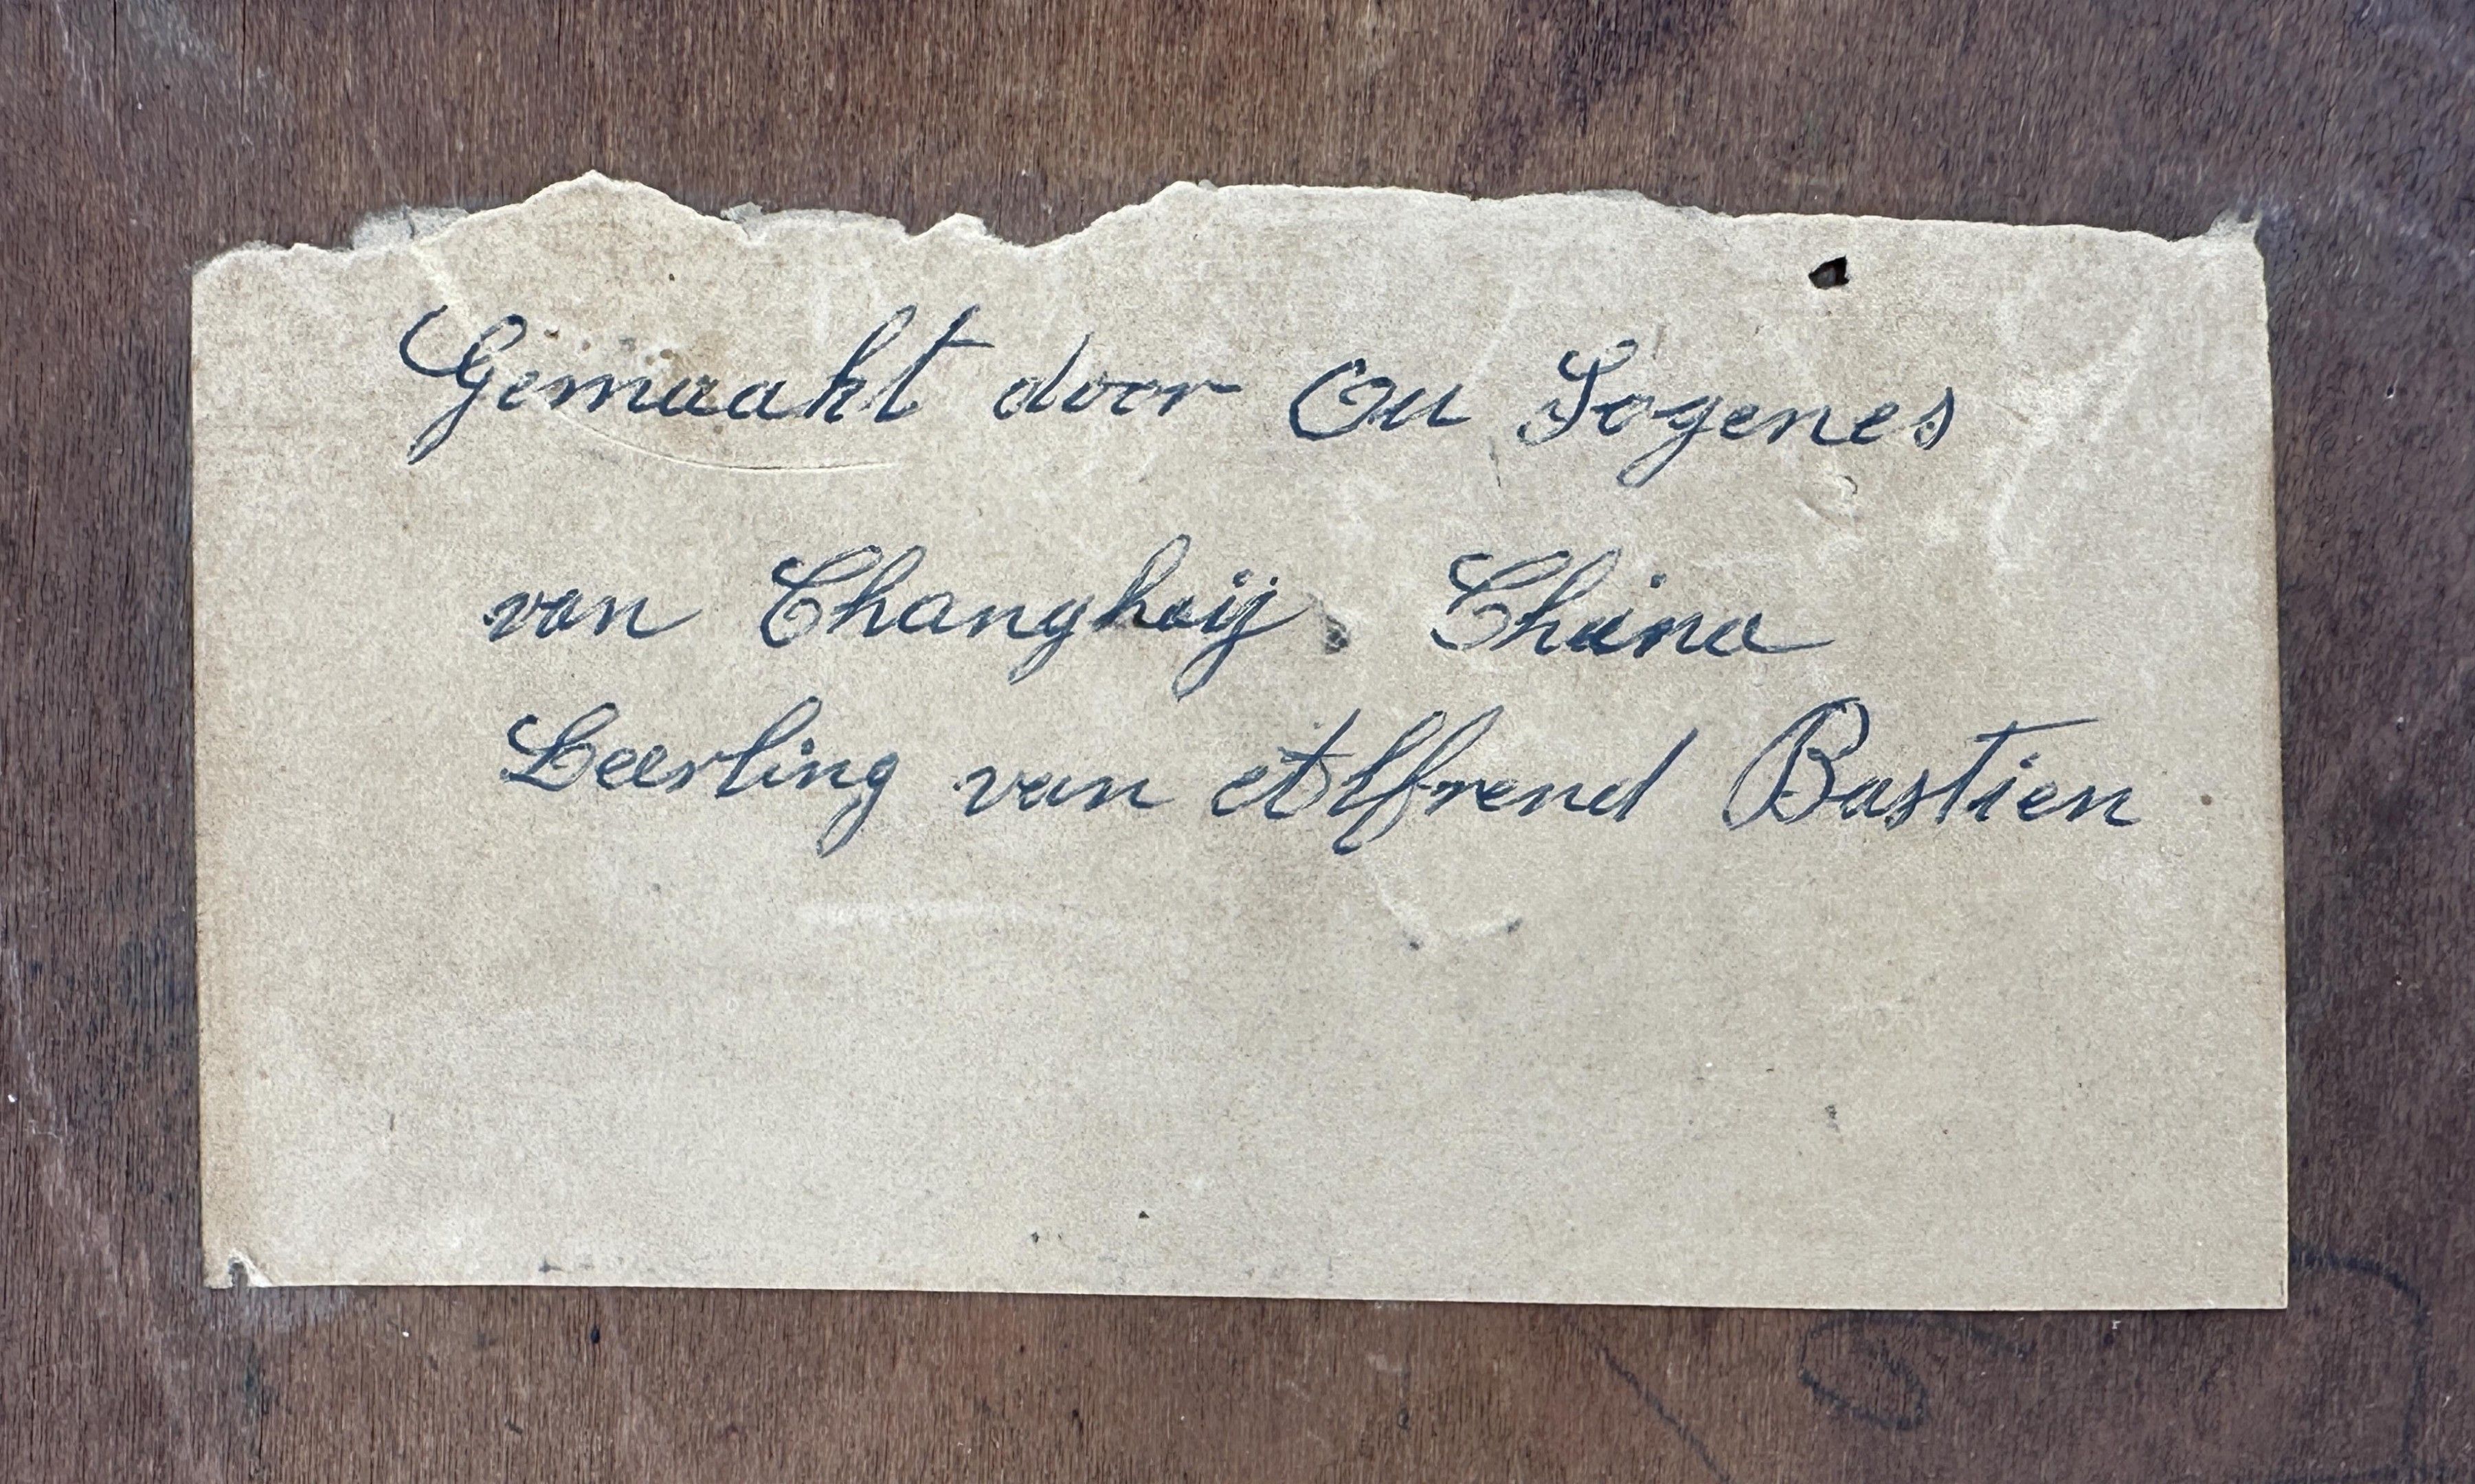 Gemaakt door Ou Sogenes
van Changhaij China
Leerling van Alfrend Bastien